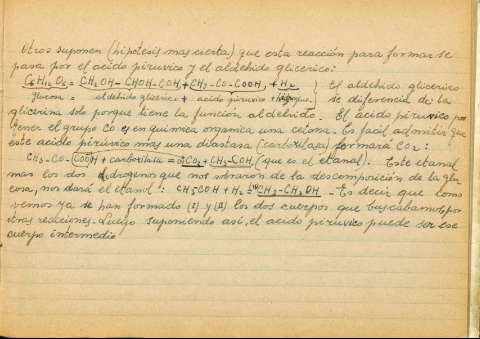 Otros suponen (hipótesis mas cierta) que esta reacción para formarse
pasa por el acido piruvico y el aldehido glicerico:
C6H12O6 = CH2OH-CHOH-COH + CH3-Co-COOH + H2 } El aldehido glicerico
glucosa = aldehido glicerico + acido piruvico + se diferencia de la
glicerina solo porque tiene la función aldehido. El ácido piruvico por
tener el grupo CO es en quimica organica una cetona. Es facil admitir que
este acido pirúvico mas una diastasa (carboxilasa) formará CO2:
CH3-Co-COOH + carboxilasa = CO2 + CH3-COH (que es el etanal). Este etanal
mas los dos hidrogenos que nos sobraron de la descomposición de la glu
cosa, nos dará el etanol: CH3COH + H2 = CH3-CH2OH - Es decir que como
vemos ya se han formado (I) y (II) los dos cuerpos que buscabamos por
otras reacciones. Luego suponiendo así, el acido piruvico puede ser ese
cuerpo intermedio